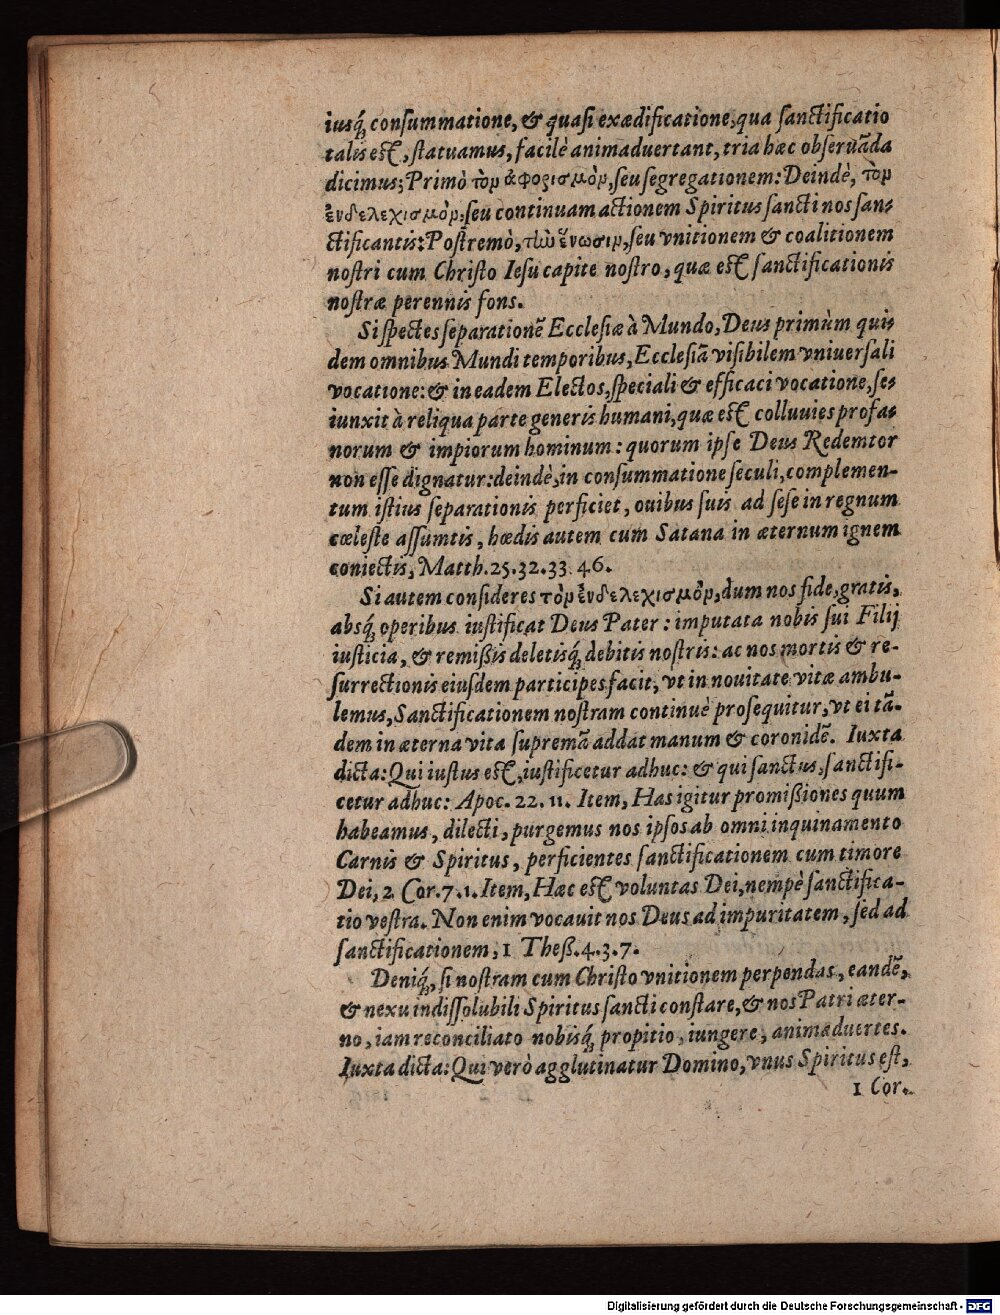 iusq́ꝫ consummatione, & quasi exædificatione, qua sanctificatio
talis est, statuamus, facilè animaduertant, tria hæc obseruãda
dicimus; Primò τὸν ἀφορισμὸν, seu segregationem: Deindè, τὸν
ἐνδελεχισμὸν, seu continuam actionem Spiritus sancti nos san-
ctificantis: Postremò, τὴν ἕνωσιν, seu vnitionem & coalitionem
nostri cum Christo Iesu capite nostro, quæ est sanctificationis
nostræ perennis fons.
Si spectes separationẽ Ecclesiæ à Mundo, Deus primùm qui-
dem omnibus Mundi temporibus, Ecclesiã visibilem vniuersali
vocatione: & in eadem Electos, speciali & efficaci vocatione, se-
iunxit à reliqua parte generis humani, quæ est colluuies profa-
norum & impiorum hominum: quorum ipse Deus Redemtor
non esse dignatur: deindè, in consummatione seculi, complemen-
tum istius separationis perficiet, ouibus suis ad sese in regnum
cœleste assumtis, hœdis autem cum Satana in æternum ignem
coniectis, Matth. 25. 32. 33. 46.
Si autem consideres τὸν ἐνδελεχισμὸν, dum nos fide, gratis,
absq́ꝫ operibus iustificat Deus Pater: imputata nobis sui Filij
iusticia, & remißis deletisq́ꝫ debitis nostris: ac nos mortis & re-
surrectionis eiusdem participes facit, vt in nouitate vitæ ambu-
lemus, Sanctificationem nostram continuè prosequitur, vt ei tã-
dem in æterna vita supremã addat manum & coronidẽ. Iuxta
dicta: Qui iustus est, iustificetur adhuc: & qui sanctus, sanctifi-
cetur adhuc: Apoc. 22. 11. Item, Has igitur promißiones quum
habeamus, dilecti, purgemus nos ipsos ab omni inquinamento
Carnis & Spiritus, perficientes sanctificationem cum timore
Dei, 2 Cor. 7. 1. Item, Hæc est voluntas Dei, nempè sanctifica-
tio vestra. Non enim vocauit nos Deus ad impuritatem, sed ad
sanctificationem, 1 Theß. 4. 3. 7.
Deniq́ꝫ, si nostram cum Christo vnitionem perpendas, eandẽ,
& nexu indissolubili Spiritus sancti constare, & nos Patri æter-
no, iam reconciliato nobisq́ꝫ propitio, iungere, animaduertes.
Iuxta dicta: Qui verò agglutinatur Domino, vnus Spiritus est,
1 Cor.
Digitalisierung gefördert durch die Deutsche Forschungsgemeinschaft - DFG